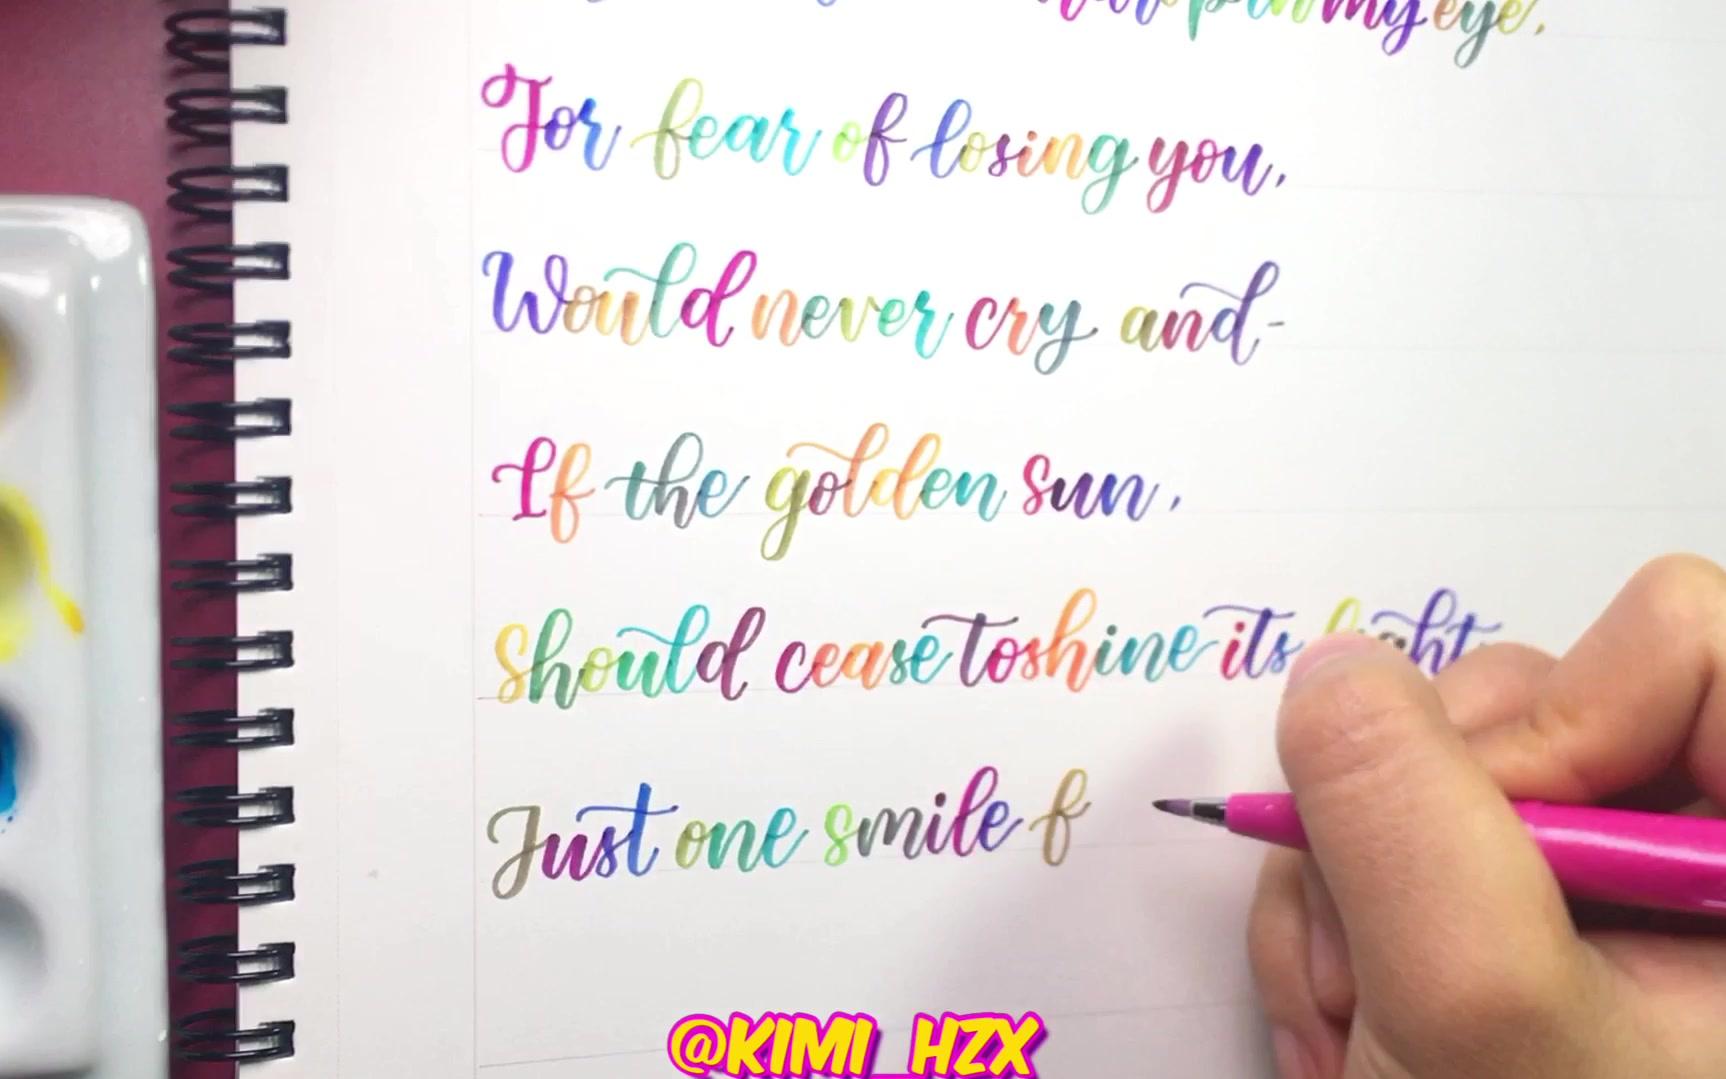 in my eye.
For fear of losing you,
Would never cry and-
If the golden sun,
Should cease to shine its light
Just one smile f
@KIMI_HZX